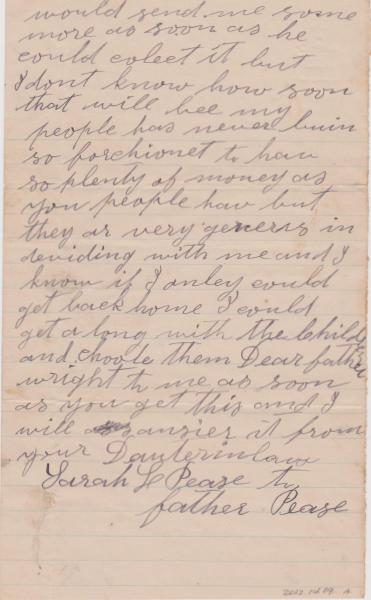 would send me some
more as soon as he
could colect it but
I dont know how soon
that will bee my
people has never buin
so forchionet to hav
so plenty of money as
you people hav but
they ar very generis in
deviding with me and I
know if I onley could
get back home I could
get a long with the Children
and choole them Dear father
wright to me as soon
as you get this and I
will ansier it from
your Dauterinlaw
Sarah L Pease to
father Pease